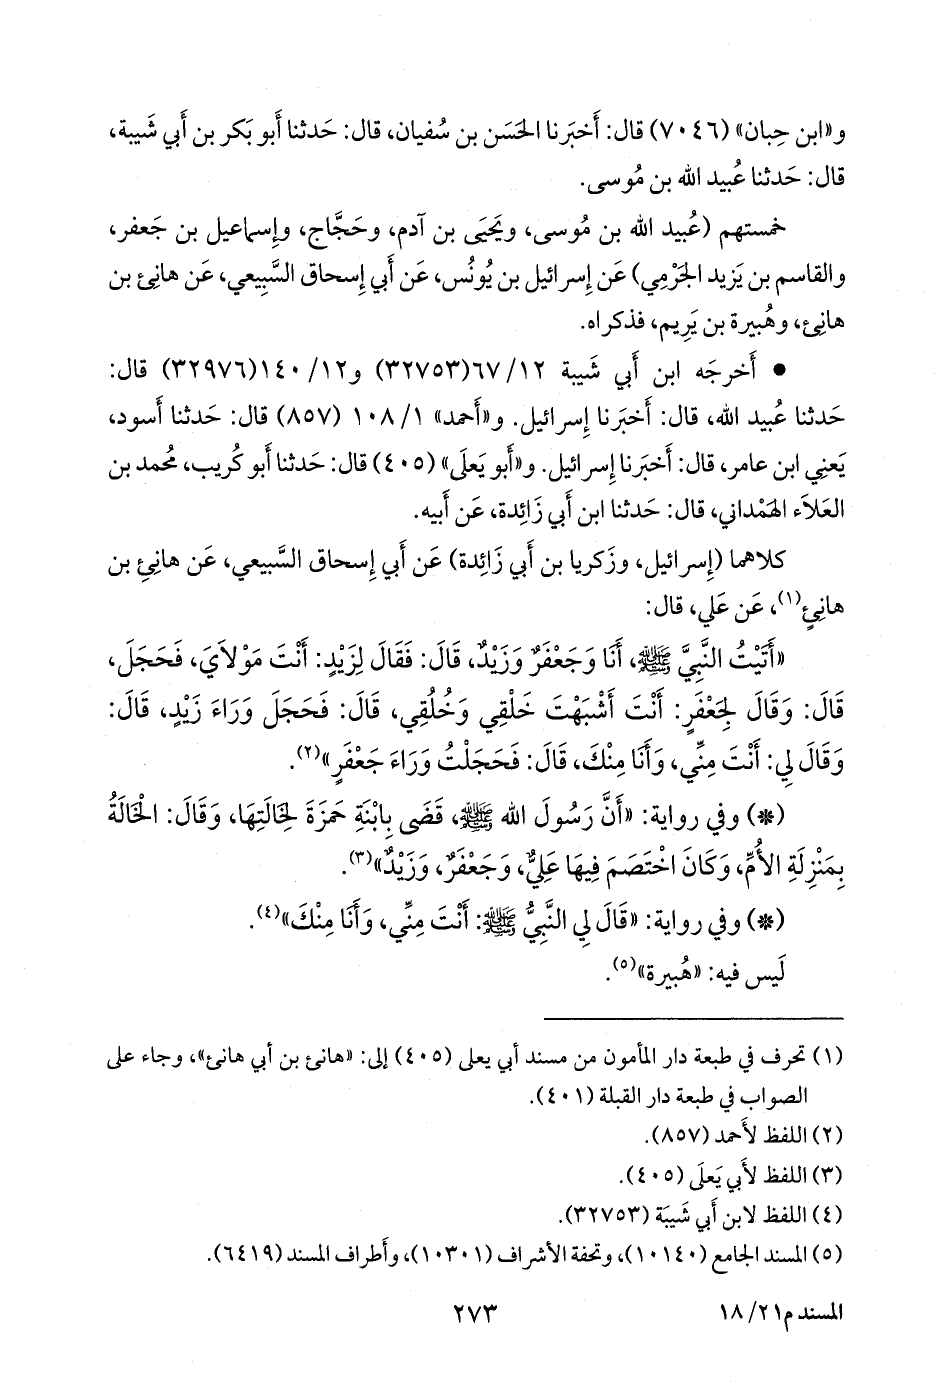 و«ابن حِبان» (٧٠٤٦) قال: أَخبَرنا الحَسَن بن سُفيان، قال: حَدثنا أَبو بَكر بن أَبي شَيبة،
قال: حَدثنا عُبيد الله بن مُوسى.
خمستهم (عُبيد الله بن مُوسى، ويَحيَى بن آدم، وحَجَّاج، وإِسماعيل بن جَعفر،
والقاسم بن يَزيد الجَرْمي) عَن إِسرائيل بن يُونُس، عَن أَبي إِسحاق السَّبيعي، عَن هانِئ بن
هانِئ، وهُبيرة بن يَرِيم، فذكراه.
• أَخرجَه ابن أَبي شَيبة ١٢/ ٦٧(٣٢٧٥٣) و١٢/ ١٤٠(٣٢٩٧٦) قال:
حَدثنا عُبيد الله، قال: أَخبَرنا إِسرائيل. و«أَحمد» ١/ ١٠٨ (٨٥٧) قال: حَدثنا أَسود،
يَعني ابن عامر، قال: أَخبَرنا إِسرائيل. و«أَبو يَعلَى» (٤٠٥) قال: حَدثنا أَبو كُريب، مُحمد بن
العَلاَء الهَمْداني، قال: حَدثنا ابن أَبي زَائِدة، عَن أَبيه.
كلاهما (إِسرائيل، وزَكريا بن أَبي زَائِدة) عَن أَبي إِسحاق السَّبيعي، عَن هانِئِ بن
هانِئٍ(١)، عَن عَلي، قال:
«أَتَيْتُ النَّبِيَّ ﷺ، أَنَا وَجَعْفَرٌ وَزَيْدٌ، قَالَ: فَقَالَ لِزَيْدٍ: أَنْتَ مَوْلاَيَ، فَحَجَلَ،
قَالَ: وَقَالَ لِجَعْفَرٍ: أَنْتَ أَشْبَهْتَ خَلْقِي وَخُلُقِي، قَالَ: فَحَجَلَ وَرَاءَ زَيْدٍ، قَالَ:
وَقَالَ لِي: أَنْتَ مِنِّي، وَأَنَا مِنْكَ، قَالَ: فَحَجَلْتُ وَرَاءَ جَعْفَرٍ»(٢).
(*) وفي رواية: «أَنَّ رَسُولَ الله ﷺ، قَضَى بِابْنَةِ حَمْزَةَ لِخَالَتِهَا، وَقَالَ: الْخَالَةُ
بِمَنْزِلَةِ الأُمِّ، وَكَانَ اخْتَصَمَ فِيهَا عَلِيٌّ، وَجَعْفَرٌ، وَزَيْدٌ»(٣).
(*) وفي رواية: «قَالَ لِي النَّبِيُّ ﷺ: أَنْتَ مِنِّي، وَأَنَا مِنْكَ»(٤).
لَيس فيه: «هُبيرة»(٥).
(١) تحرف في طبعة دار المأمون من مسند أبي يعلى (٤٠٥) إلى: «هانئ بن أبي هانئ»، وجاء على
الصواب في طبعة دار القبلة (٤٠١).
(٢) اللفظ لأَحمد (٨٥٧).
(٣) اللفظ لأَبي يَعلَى (٤٠٥).
(٤) اللفظ لابن أَبي شَيبَة (٣٢٧٥٣).
(٥) المسند الجامع (١٠١٤٠)، وتحفة الأشراف (١٠٣٠١)، وأَطراف المسند (٦٤١٩).
المسند م٢١/ ١٨
٢٧٣